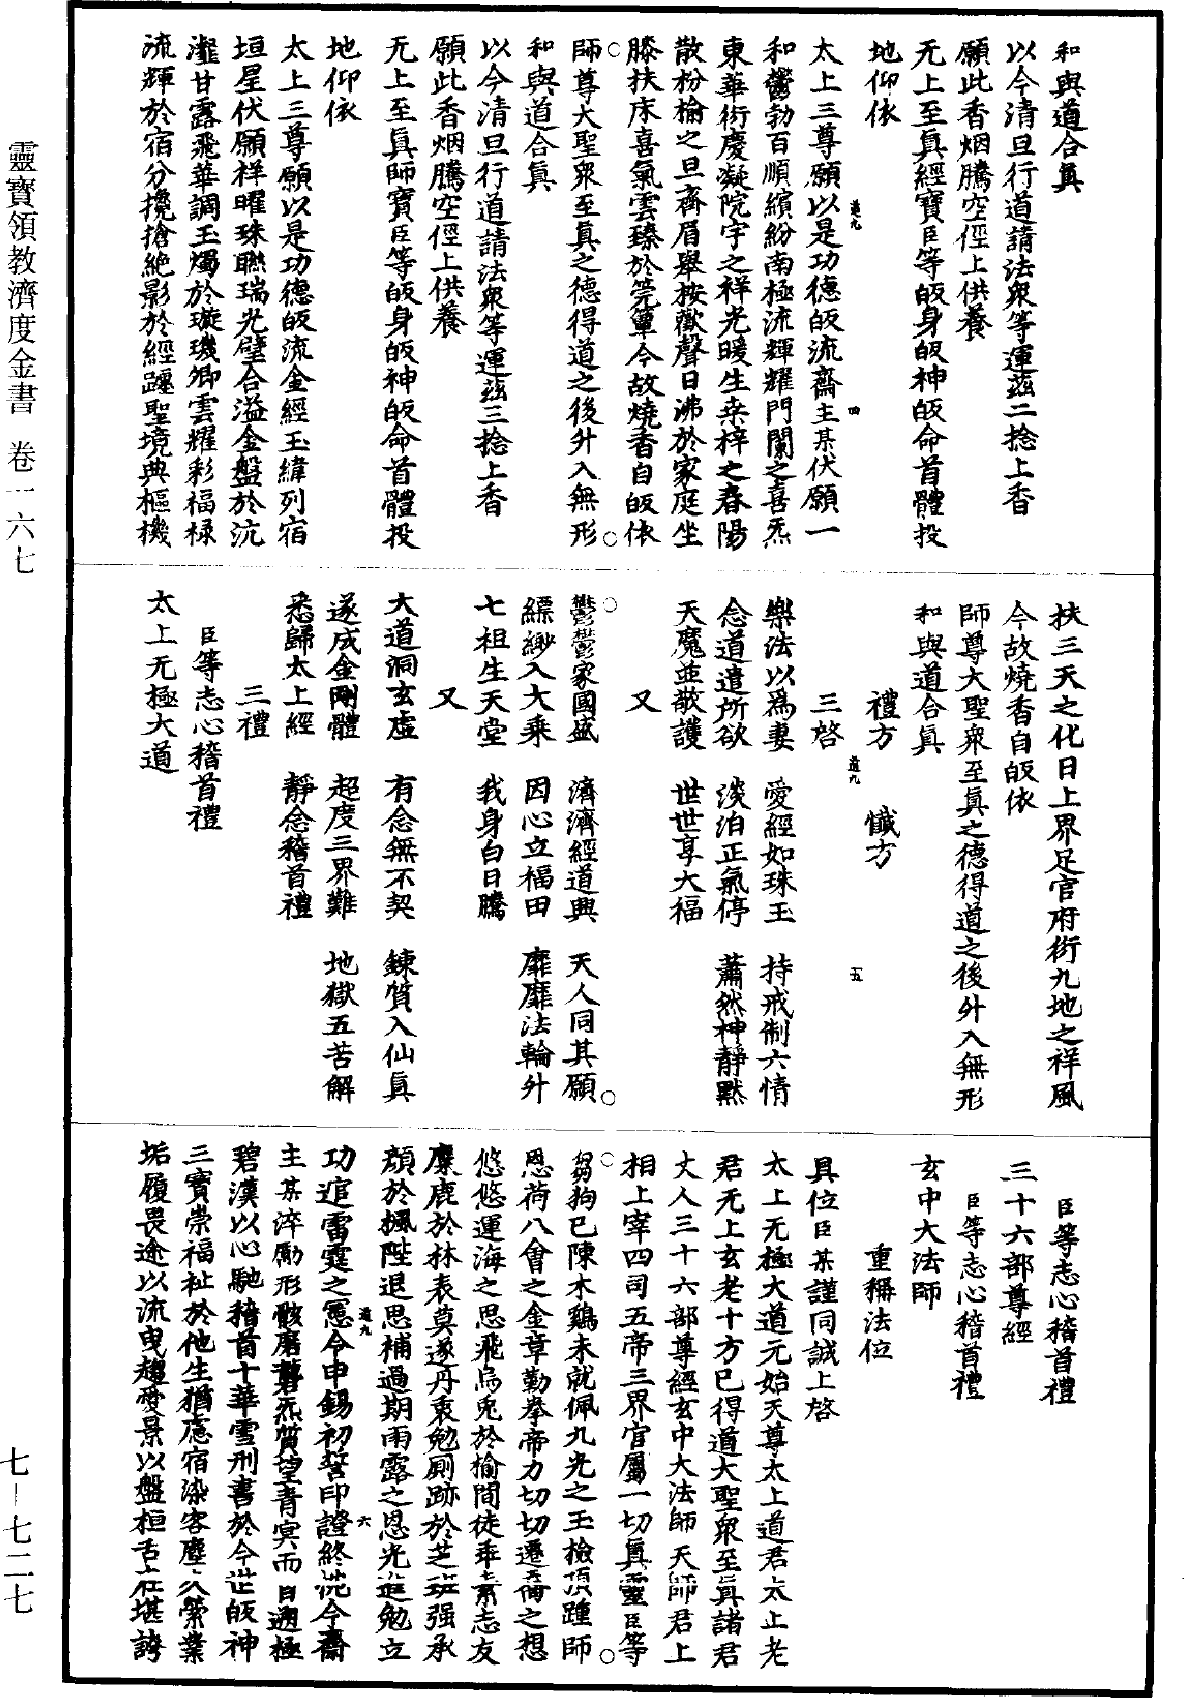 和與道合眞
以今清旦行道請法衆等運茲二捻上香
願此香烟騰空徑上供養
无上至眞經寶臣等皈身皈神皈命首體投
地仰依
太上三尊願以是功德皈流齋主某伏願一
和鬱勃百順繽紛南極流輝耀門闌之喜炁
東華衍慶凝院宇之祥光暖生桒梓之春陽
散枌榆之旦齊眉舉按歡聲日沸於家庭坐
膝扶床喜氣雲臻於筦簟今故燒香自皈依
師尊大聖衆至真之德得道之後外入無形
和與道合眞
以今清旦行道請法衆等運茲三捻上香
願此香烟騰空徑上供養
无上至眞師寶臣等皈身皈神皈命首體投
地仰依
太上三尊願以是功德皈流金經玉緯列宿
垣星伏願祥曜珠聯瑞光壁合溢金盤於沆
瀣甘露飛華調玉燭於璇璣卿雲耀彩福祿
流輝於宿分攙搶絶影於經躔聖境典樞機
道九
四
扶三天之化日上界足官府衍九地之祥風
今故燒香自皈依
師尊大聖衆至眞之德得道之後外入無形
和與道合眞
禮方 懺方
三啓
樂法以爲妻 愛經如珠玉 持戒制六情
念道遣所欲 淡泊正氣停 蕭然神靜默
天魔並敬護 世世享大福
又
鬱鬱家國盛 濟濟經道興 天人同其願
縹緲入大乘 因心立福田 靡靡法輪升
七祖生天堂 我身白日騰
又
大道洞玄虛 有念無不契 鍊質入仙眞
遂成金剛體 超度三界難 地獄五苦解
悉歸太上經 靜念稽首禮
三禮
臣等志心稽首禮
太上无極大道
道九
五
臣等志心稽首禮
三十六部尊經
臣等志心稽首禮
玄中大法師
重稱法位
具位臣某謹同誠上啓
太上无極大道元始天尊太上道君太上老
君无上玄老十方已得道大聖衆至眞諸君
丈人三十六部尊經玄中大法師天師君上
相上宰四司五帝三界官屬一切眞靈臣等
芻狗已陳木鷄未就佩九光之玉檢頂踵師
恩荷八會之金章勤拳帝力切切遷喬之想
悠悠運海之思飛烏兎於榆間徒乖素志友
麋鹿於林表莫遂丹衷勉厠跡於芝班强承
顔於楓陛退思補過期雨露之恩光進勉立
功逭雷霆之冤今申錫初誓印證終洗今齋
主某淬勵形骸磨礱炁質望青冥而目遡極
碧漢以心馳稽首十華雪刑書於今世皈神
三寶崇福祉於他生猶慮宿染客塵久縈業
垢履畏途以流曳趨愛景以盤桓舌在堪誇
道九
六
靈寶領教濟度金書 卷一六七
七—七二七